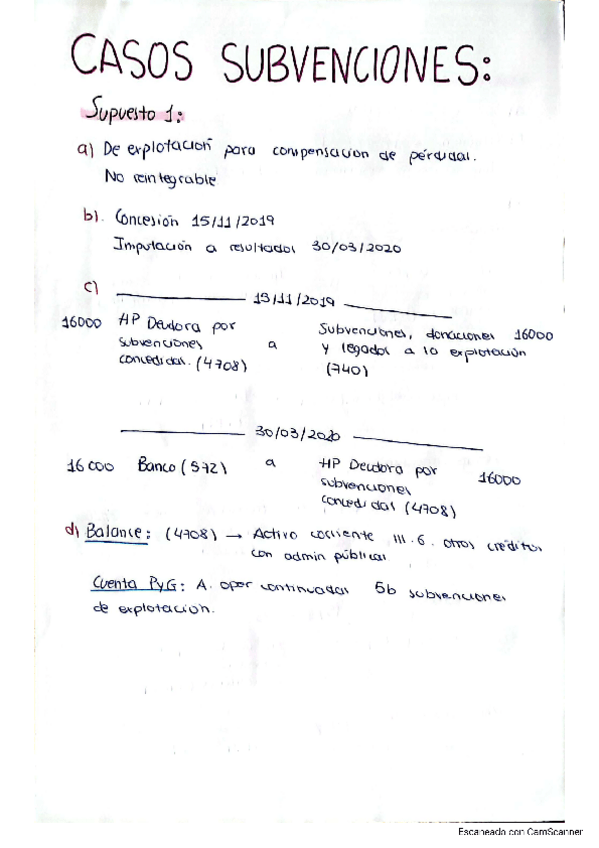 CASOS SUBVENCIONES:
Supuesto 1:
a) De explotación para compensación de pérdidas.
No reintegrable
b). Concesión 15/11/2019
Imputación a resultados 30/03/2020
c) 15/11/2019
16000 HP Deudora por subvenciones concedidas. (4708) a Subvenciones, donaciones y legados a la explotación (740) 16000
30/03/2020
16000 Banco (572) a HP Deudora por subvenciones concedidas (4708) 16000
d) Balance: (4708) → Activo corriente III. 6. otros créditos
con admin públicas
Cuenta PyG: A. oper continuadas 5b subvenciones
de explotación.
Escaneado con CamScanner